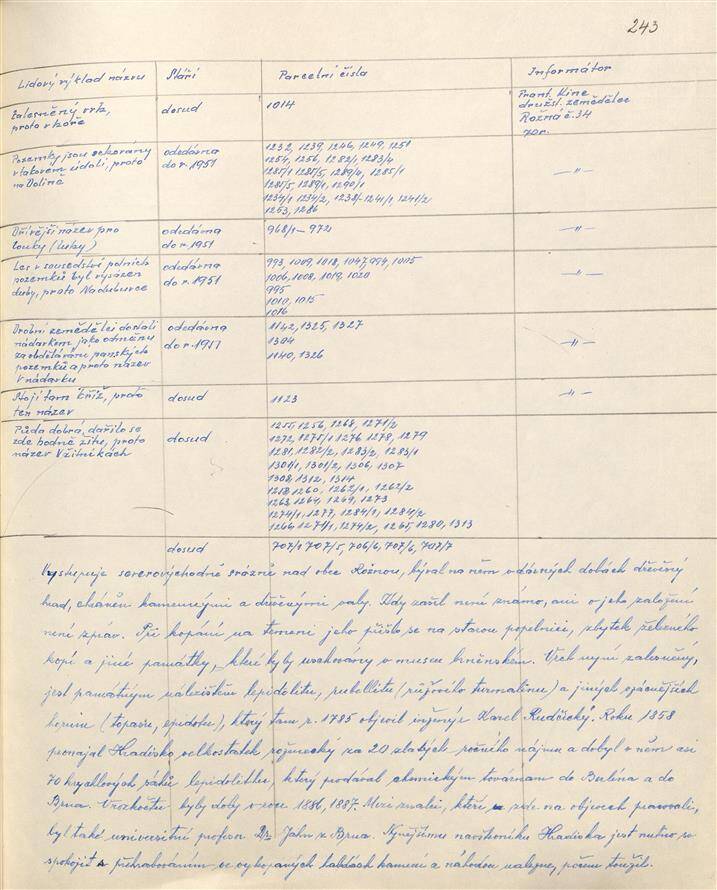 243
Lidový výklad názvu Stáří Parcelní čísla Informátor
Zalesněný vrh, dosud 1014 Frant. Kine
proto v hoře družst. zemědělec
Rožná č. 34
70 r.
Pozemky jsou sekovány odedávna 1232, 1239, 1246, 1249, 1251
v takovém údolí, proto do r. 1951 1254, 1256, 1282/1, 1283/4 —"—
na Dolině 1285/1 1285/5, 1289/4, 1285/1
1285/5, 1289/1, 1290/1
1234/1 1234/2, 1238/- 1241/1, 1241/2
1253, 1286
Dřívější název pro odedávna 968/1 — 972 —"—
louky (luky) do r. 1951
Les v sousedství polních odedávna 993, 1009, 1018, 1047, 994, 1005
pozemků byl vysázen do r. 1951 1006, 1008, 1019, 1020 —"—
duby, proto Na dubovce 995
1010, 1015
1016
Drobní zemědělci dostali odedávna 1142, 1325, 1327
nádarkem, jako odměnu do r. 1951 1304 —"—
za obdělávání panských 1140, 1326
pozemků a proto název
V nádarku
Stojí tam kříž, proto dosud 1123 —"—
ten název
Půda dobrá, dařilo se dosud 1255, 1256, 1268, 1271/2
zde hodně žito, proto 1272, 1275/1 1276 1278, 1279
název V žitníkách 1281, 1282/2, 1283/2, 1283/1
1301/1, 1301/2, 1306, 1307
1308, 1312, 1314
1260, 1262/1, 1262/2
1263 1264, 1269, 1273
1274/1, 1277, 1284/1, 1284/2
1266 1271/1, 1274/2, 1265, 1280, 1313
dosud 707/1 707/5, 706/6, 707/6, 707/7
Vystupuje severovýchodně srázně nad obec Rožnou, býval na něm v dávných dobách dřevěný
hrad, chráněn kamennými a dřevěnými valy. Kdy zašel není známo, ani o jeho založení
není zpráv. Při kopání na temeni jeho přišlo se na starou popelnici, zbytek železného
kopí a jiné památky, které byly uschovány v museu brněnském. Vrch nyní zalesněný,
jest památným nalezištěm lepidolitu, rubellitu (růžového turmalinu) a jiných vzácnějších
hornin (topasu, epidotu), který tam r. 1785 objevil inženýr Karel Rudčický. Roku 1858
pronajal Hradisko velkostatek rožinecký za 20 zlatých ročního nájmu a dobyl v něm asi
70 krychlových sáhů lepidolitu, který prodával chemickým továrnám do Berlína a do
Brna. V rozkvětu byly doly v roce 1886, 1887. Mezi znalci, kteří zde na objevech pracovali,
byl také universitní profesor Dr. Jahn z Brna. Nynějšímu navštěvníku Hradiska jest nutno se
spokojit s přehrabováním ve vykopaných haldách kamení a náhodou nalezne, po čem toužil.